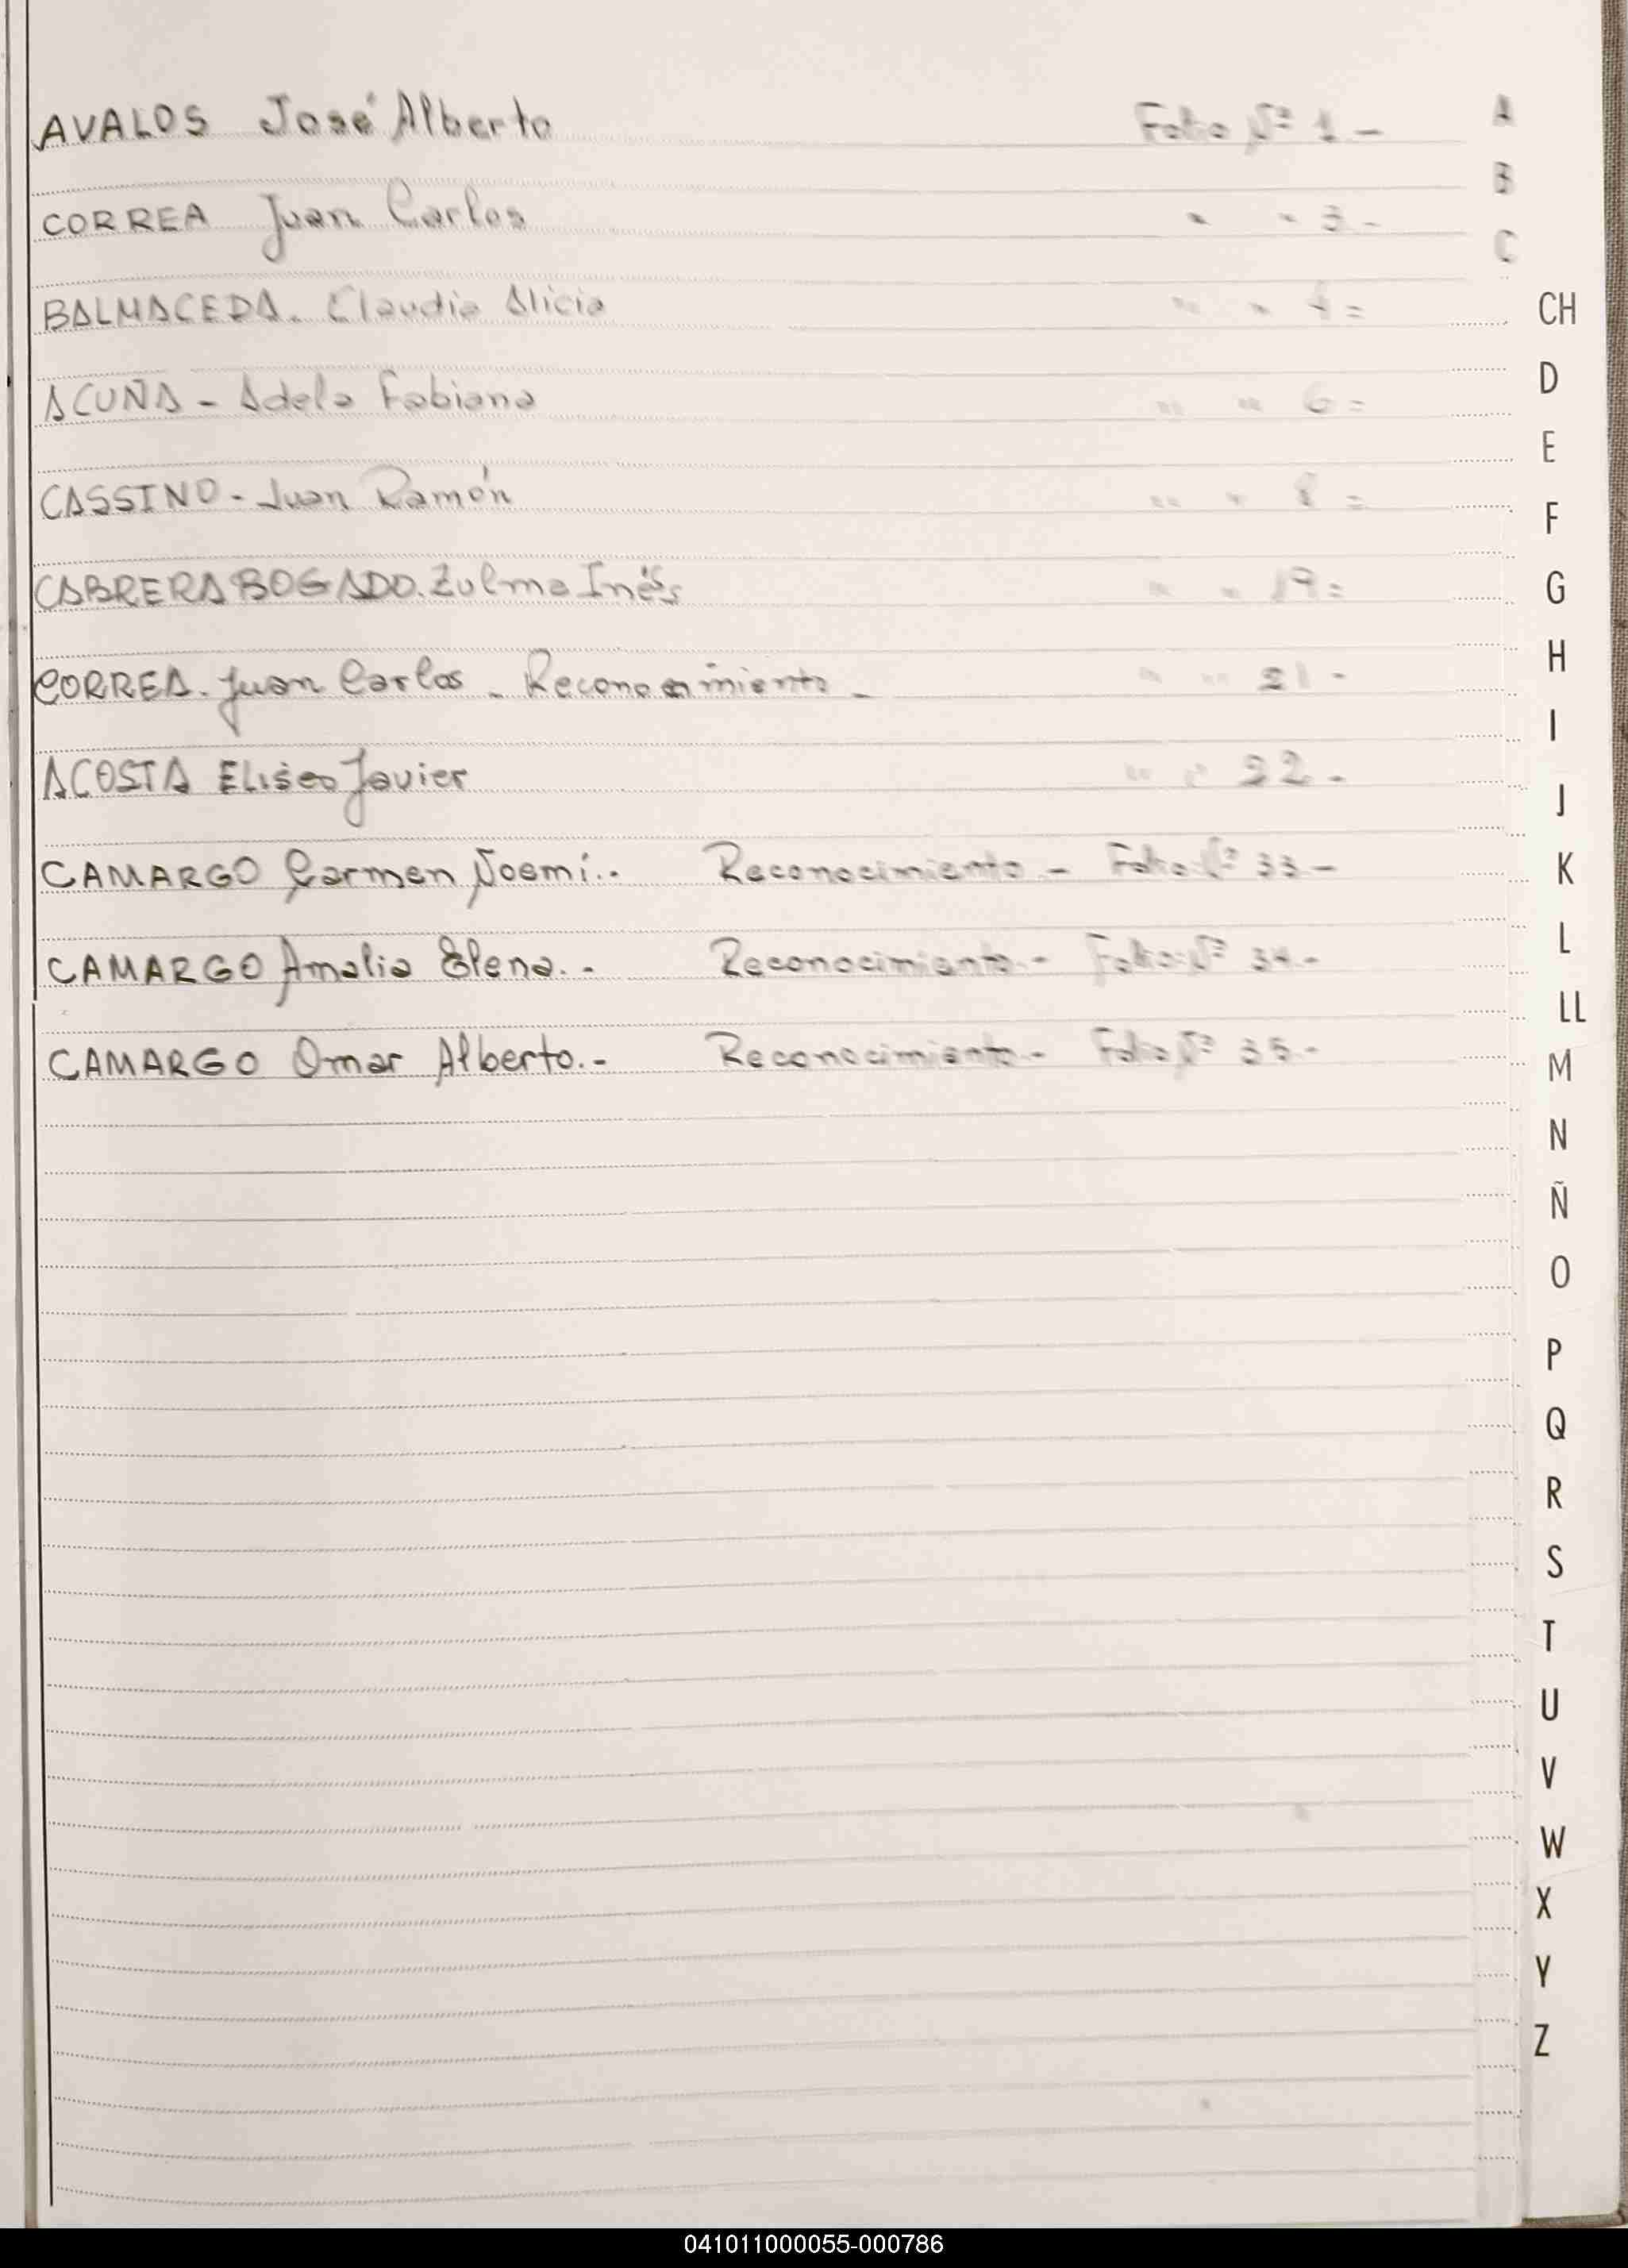 AVALOS José Alberto Folio Nº 1 -
CORREA Juan Carlos " " 3 -
BALMACEDA. Claudia Alicia " " 4 =
ACUÑA - Adela Fabiana " " 6 =
CASSINO - Juan Ramón " " 8 =
CABRERA BOGADO. Zulma Inés " " 19 =
CORREA. Juan Carlos - Reconocimiento - " " 21 -
ACOSTA Eliseo Javier " " 22 -
CAMARGO Carmen Noemí.- Reconocimiento - Folio Nº 33 -
CAMARGO Amalia Elena.- Reconocimiento.- Folio Nº 34.-
CAMARGO Omar Alberto.- Reconocimiento.- Folio Nº 35.-
A
B
C
CH
D
E
F
G
H
I
J
K
L
LL
M
N
Ñ
O
P
Q
R
S
T
U
V
W
X
Y
Z
041011000055-000786